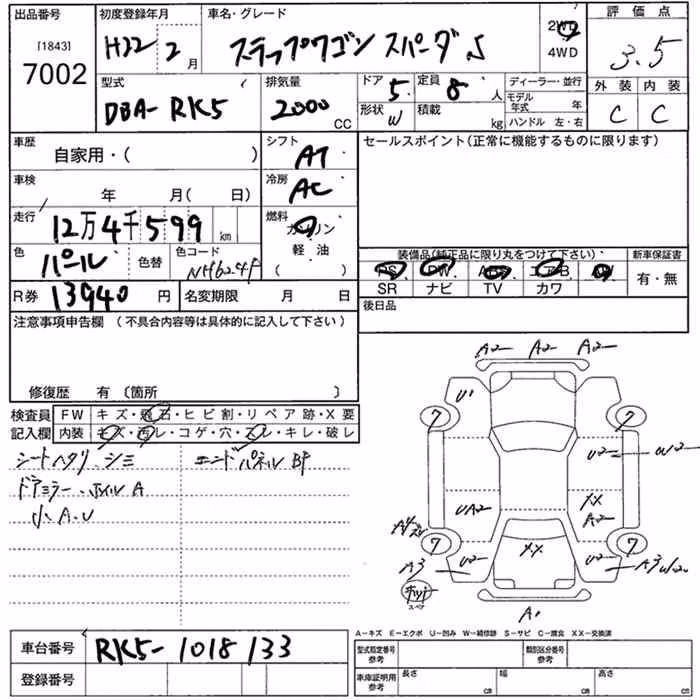 出品番号 初度登録年月 車名・グレード 評価点
[1843] 7002 H22 2月 ステップワゴン スパーダ S 2WD 4WD 3.5
型式 排気量 ドア 5 定員 8人 ディーラー・並行 外装 内装
DBA-RK5 2000 CC 形状 W 積載 kg モデル年式 年 ハンドル 左・右 C C
車歴 自家用・( ) シフト AT セールスポイント(正常に機能するものに限ります)
車検 年 月( 日) 冷房 AC
走行 12万4千599 km 燃料 ガソリン
色 パール 色替 色コード NH624P 軽・油 ( )
装備品(純正品に限り丸をつけて下さい) 新車保証書
PS PW ABS エアB AW 有・無
SR ナビ TV カワ
R券 13940 円 名変期限 月 日 後日品
注意事項申告欄 (不具合内容等は具体的に記入して下さい)
修復歴 有 〔箇所 〕
検査員 FW キズ・飛石・ヒビ割・リペア跡・X要
記入欄 内装 キズ・汚レ・コゲ・穴・スレ・キレ・破レ
シートヘタリ、シミ エンドパネル BP
ドアミラー、ホイル A
小A.U
A2 A2 A2
U1
7 7
U2 W2
UA2 XX A2
7 7
A3 U2 XX U2 A3
スペア
A1
A-キズ E-エクボ U-凹み W-補修跡 S-サビ C-腐食 XX-交換済
車台番号 RK5-1018133 型式指定番号 参考 類別区分番号 参考
登録番号 車庫証明用 参考 長さ cm 幅 cm 高さ cm